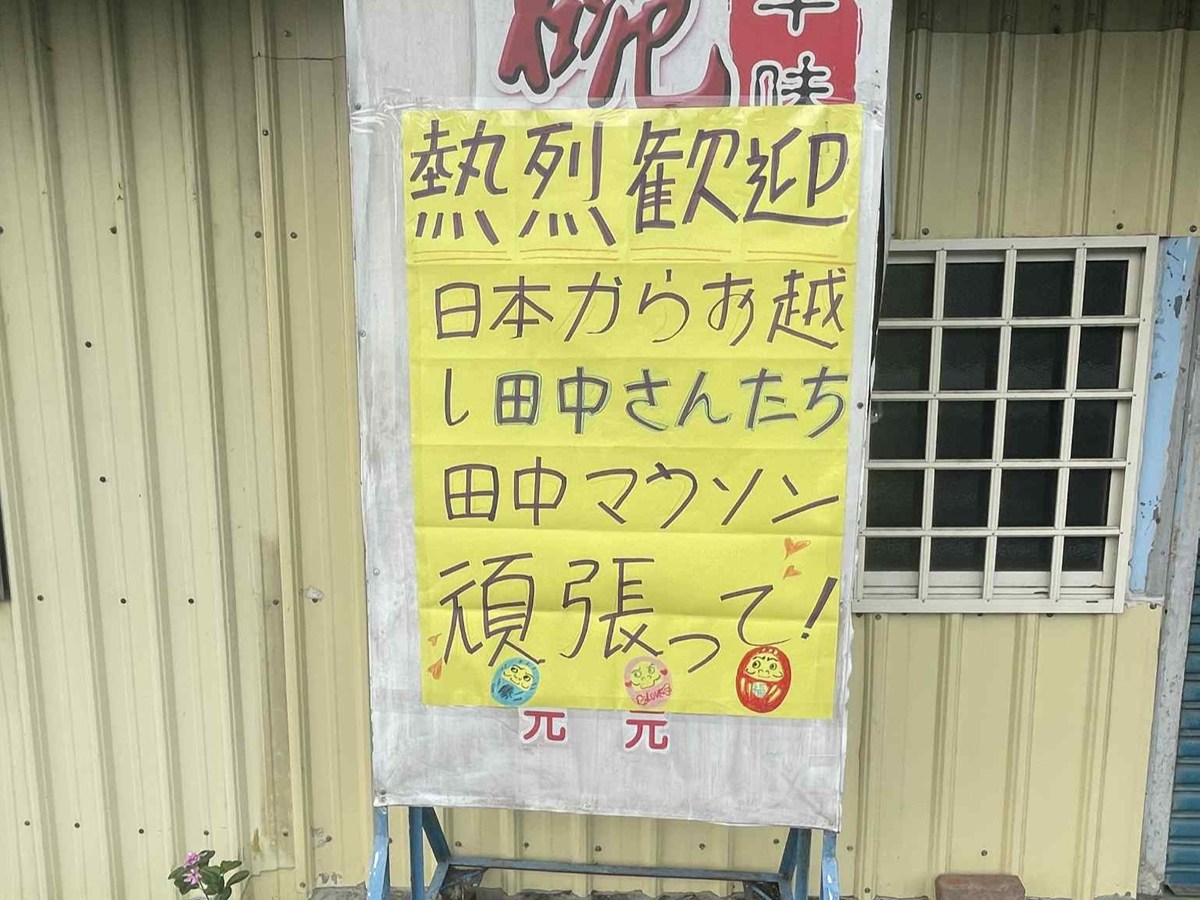 味
熱烈歓迎
日本からお越
し田中さんたち
田中マウソン
頑張って!
元 元